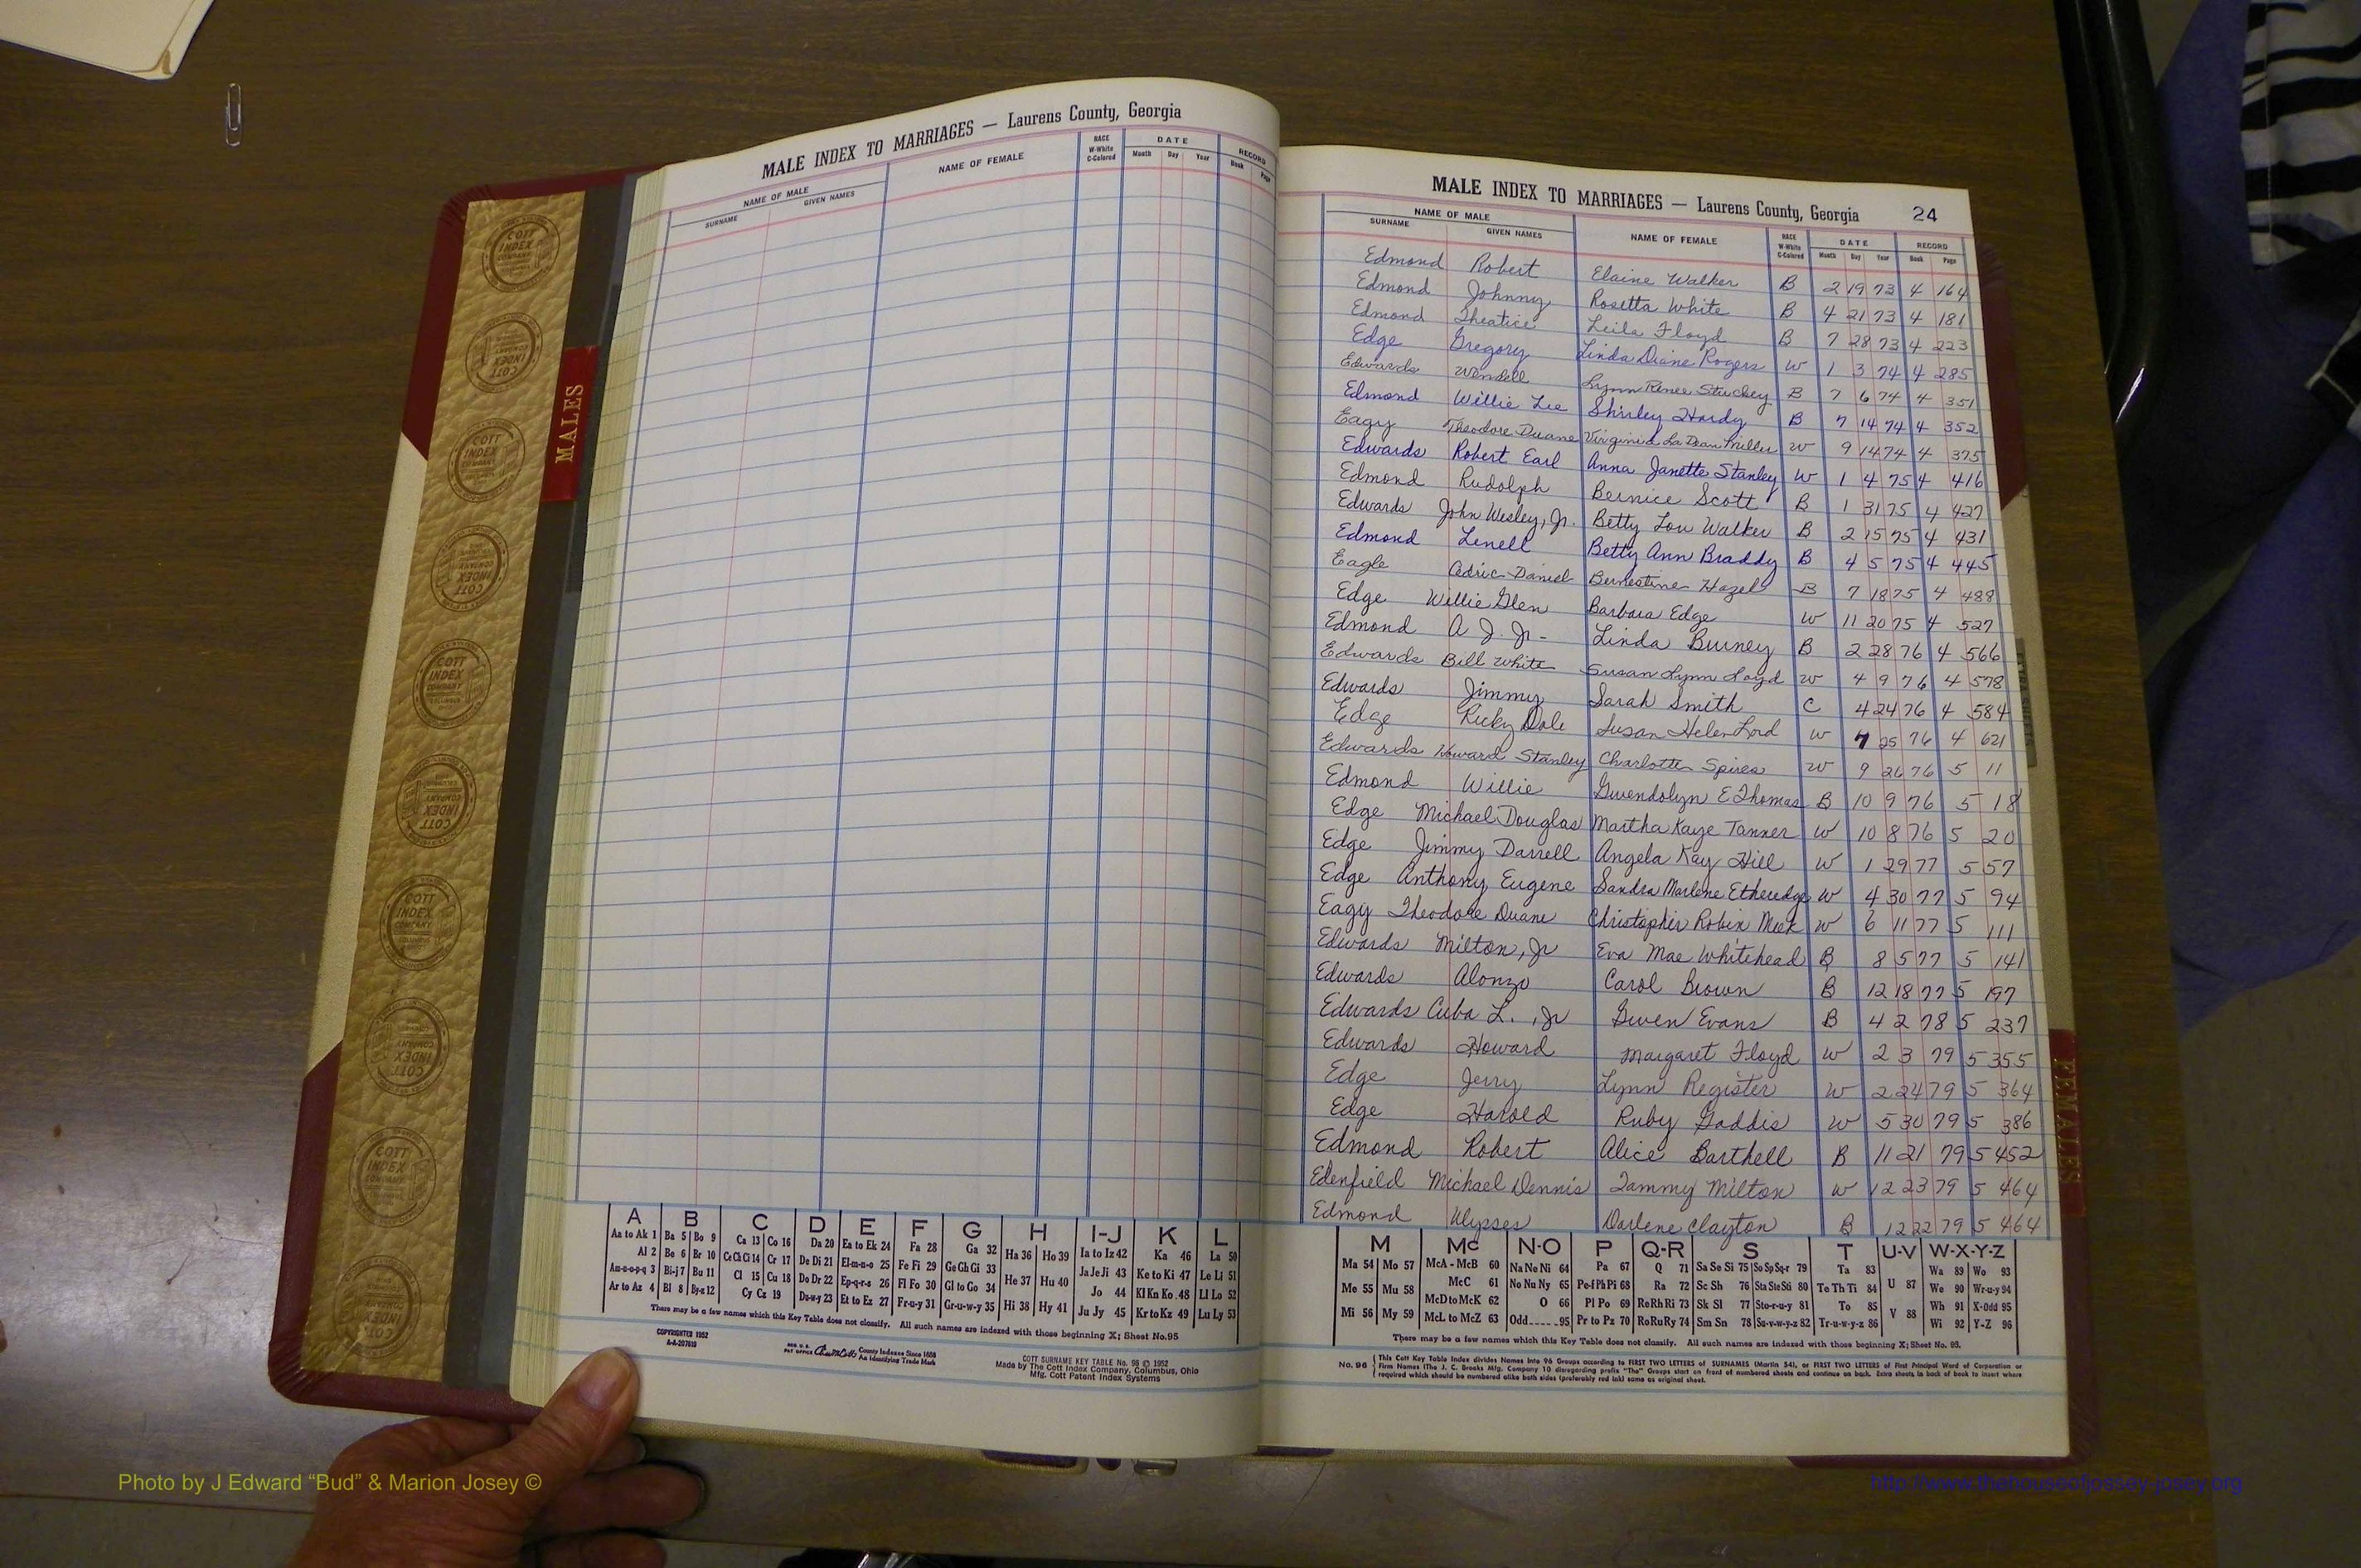 MALE INDEX TO MARRIAGES — Laurens County, Georgia
NAME OF MALE NAME OF FEMALE RACE W-White C-Colored DATE RECORD
SURNAME GIVEN NAMES Month Day Year Book Page
MALES
MALE INDEX TO MARRIAGES — Laurens County, Georgia 24
NAME OF MALE NAME OF FEMALE RACE W-White C-Colored DATE RECORD
SURNAME GIVEN NAMES Month Day Year Book Page
Edmond Robert Elaine Walker B 2 19 73 4 164
Edmond Johnny Rosetta White B 4 21 73 4 181
Edmond Theatice Leila Floyd B 7 28 73 4 223
Edge Gregory Linda Diane Rogers W 1 3 74 4 285
Edwards Wendell Lynn Renee Stuckey B 7 6 74 4 351
Edmond Willie Lee Shirley Hardy B 7 14 74 4 352
Eagy Theodore Duane Virginia La Dean Miller W 9 14 74 4 375
Edwards Robert Earl Anna Janette Stanley W 1 4 75 4 416
Edmond Rudolph Bernice Scott B 1 31 75 4 427
Edwards John Wesley, Jr. Betty Lou Walker B 2 15 75 4 431
Edmond Lenell Betty Ann Braddy B 4 5 75 4 445
Eagle Cedric Daniel Bernestine Hazel B 7 18 75 4 488
Edge Willie Glen Barbara Edge W 11 20 75 4 527
Edmond A J. Jr- Linda Burney B 2 28 76 4 566
Edwards Bill White Susan Lynn Loyd W 4 9 76 4 578
Edwards Jimmy Sarah Smith C 4 24 76 4 584
Edge Ricky Dale Susan Helen Lord W 7 25 76 4 621
Edwards Howard Stanley Charlotte Spires W 9 26 76 5 11
Edmond Willie Gwendolyn E Thomas B 10 9 76 5 18
Edge Michael Douglas Martha Kaye Tanner W 10 8 76 5 20
Edge Jimmy Darrell Angela Kay Hill W 1 29 77 5 57
Edge Anthony Eugene Sandra Marlene Etheredge W 4 30 77 5 94
Eagy Theodore Duane Christopher Robin Meek W 6 11 77 5 111
Edwards Milton, Jr Eva Mae Whitehead B 8 5 77 5 141
Edwards Alonzo Carol Brown B 12 18 77 5 197
Edwards Cuba L., Jr Gwen Evans B 4 2 78 5 237
Edwards Howard Margaret Floyd W 2 3 79 5 355
Edge Jerry Lynn Register W 2 24 79 5 364
Edge Harold Ruby Gaddis W 5 30 79 5 386
Edmond Robert Alice Barthell B 11 21 79 5 452
Edenfield Michael Dennis Tammy Milton W 12 23 79 5 464
Edmond Ulysses Darlene Clayton B 12 22 79 5 464
FEMALES
A B C D E F G H I-J K L
Aa to Ak 1 Ba 5 Bo 9 Ca 13 Co 16 Da 20 Ea to Ek 24 Fa 28 Ga 32 Ha 36 Ho 39 Ia to Iz 42 Ka 46 La 50
Al 2 Be 6 Br 10 Ce Ch Ci 14 Cr 17 De Di 21 El-m-n-o 25 Fe Fi 29 Ge Gh Gi 33 He 37 Hu 40 Ja Je Ji 43 Ke to Ki 47 Le Li 51
Am-n-o-p-q 3 Bi-j 7 Bu 11 Cl 15 Cu 18 Do Dr 22 Ep-q-r-s 26 Fl Fo 30 Gl to Go 34 Jo 44 Kl Kn Ko 48 Ll Lo 52
Ar to Az 4 Bl 8 By-z 12 Cy Cz 19 Du-w-y 23 Et to Ez 27 Fr-u-y 31 Gr-u-w-y 35 Hi 38 Hy 41 Ju Jy 45 Kr to Kz 49 Lu Ly 53
There may be a few names which this Key Table does not classify. All such names are indexed with those beginning X; Sheet No. 95
COPYRIGHTED 1952
A-A-207619
REG. U.S. PAT OFFICE County Indexes Since 1888
An Identifying Trade Mark
COTT SURNAME KEY TABLE No. 96 © 1952
Made by The Cott Index Company, Columbus, Ohio
Mfg. Cott Patent Index Systems
M Mc N-O P Q-R S T U-V W-X-Y-Z
Ma 54 Mo 57 McA - McB 60 Na Ne Ni 64 Pa 67 Q 71 Sa Se Si 75 So Sp Sq-r 79 Ta 83 Wa 89 Wo 93
Me 55 Mu 58 McC 61 No Nu Ny 65 Pe-f Ph Pi 68 Ra 72 Sc Sh 76 Sta Ste Sti 80 Te Th Ti 84 U 87 We 90 Wr-u-y 94
McD to McK 62 O 66 Pl Po 69 Re Rh Ri 73 Sk Sl 77 Sto-r-u-y 81 To 85 Wh 91 X-Odd 95
Mi 56 My 59 McL to McZ 63 Odd-----95 Pr to Pz 70 Ro Ru Ry 74 Sm Sn 78 Su-v-w-y-z 82 Tr-u-w-y-z 86 V 88 Wi 92 Y-Z 96
There may be a few names which this Key Table does not classify. All such names are indexed with those beginning X; Sheet No. 95.
No. 96 This Cott Key Table Index divides Names into 96 Groups according to FIRST TWO LETTERS of SURNAMES (Martin 54), or FIRST TWO LETTERS of First Principal Word of Corporation or
Firm Names (The J. C. Brooks Mfg. Company 10 disregarding prefix "The" Groups start on front of numbered sheets and continue on back. Extra sheets in back of book to insert where
required which should be numbered alike both sides (preferably red ink) same as original sheet.
Photo by J Edward “Bud” & Marion Josey ©
http://www.thehouseofjossey-josey.org